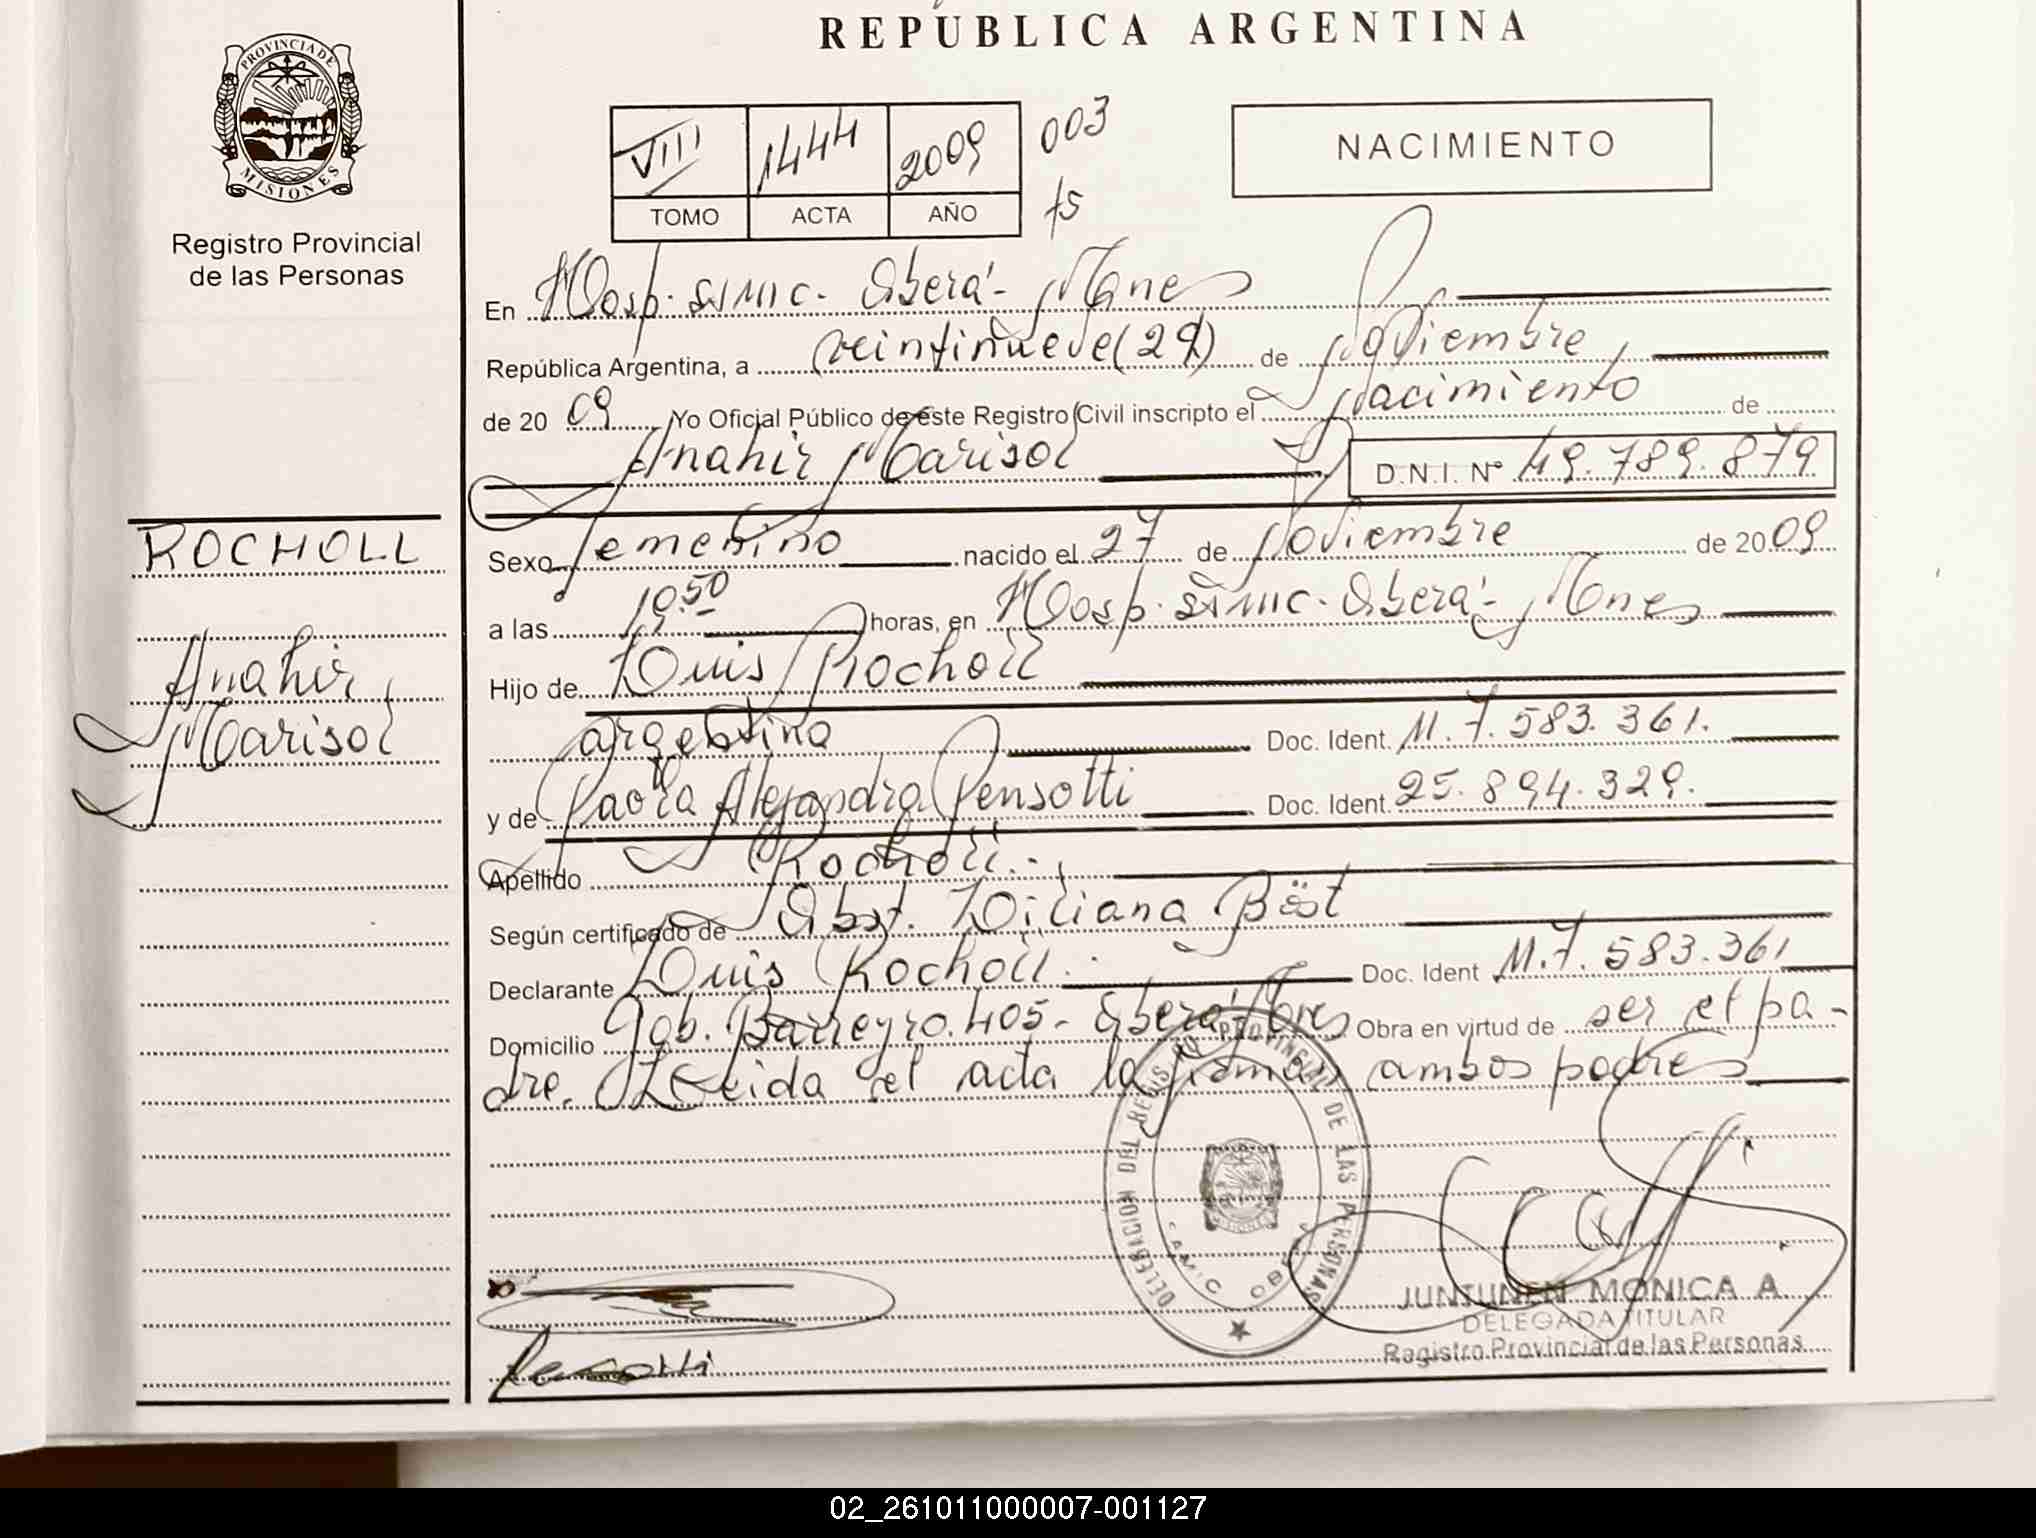 REPÚBLICA ARGENTINA
PROVINCIA DE
MISIONES
Registro Provincial
de las Personas
VIII 1444 2009 003
TOMO ACTA AÑO fs
NACIMIENTO
En Hosp. SAMIC. Oberá - Mnes
República Argentina, a veintinueve (29) de Noviembre
de 2009 Yo Oficial Público de este Registro Civil inscripto el Nacimiento de
Anahir Marisol D.N.I. Nº 49.789.879
ROCHOLL
Anahir
Marisol
Sexo femenino nacido el 27 de Noviembre de 2009
a las 19.50 horas, en Hosp. SAMIC. Oberá - Mnes
Hijo de Luis Rocholl
argentino Doc. Ident. M. 7.583.361.
y de Paola Alejandra Pensotti Doc. Ident. 25.894.329.
Apellido Rocholl
Según certificado de Obst. Liliana Böst
Declarante Luis Rocholl Doc. Ident M.7.583.361
Domicilio Gob. Barreyro. 405 - Oberá Mnes Obra en virtud de ser el pa-
dre. Leida el acta la firman ambos padres
DELEGACION DEL REGISTRO PROVINCIAL DE LAS PERSONAS
Pensotti
JUNTUNEN MONICA A
DELEGADA TITULAR
Registro Provincial de las Personas
02_261011000007-001127